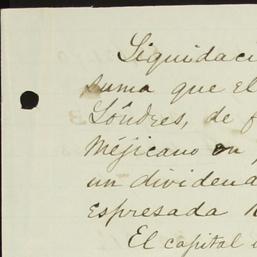 Liquidaci
suma que el
Lôndres, de f
Méjicano en
un dividend
espresada
El capital